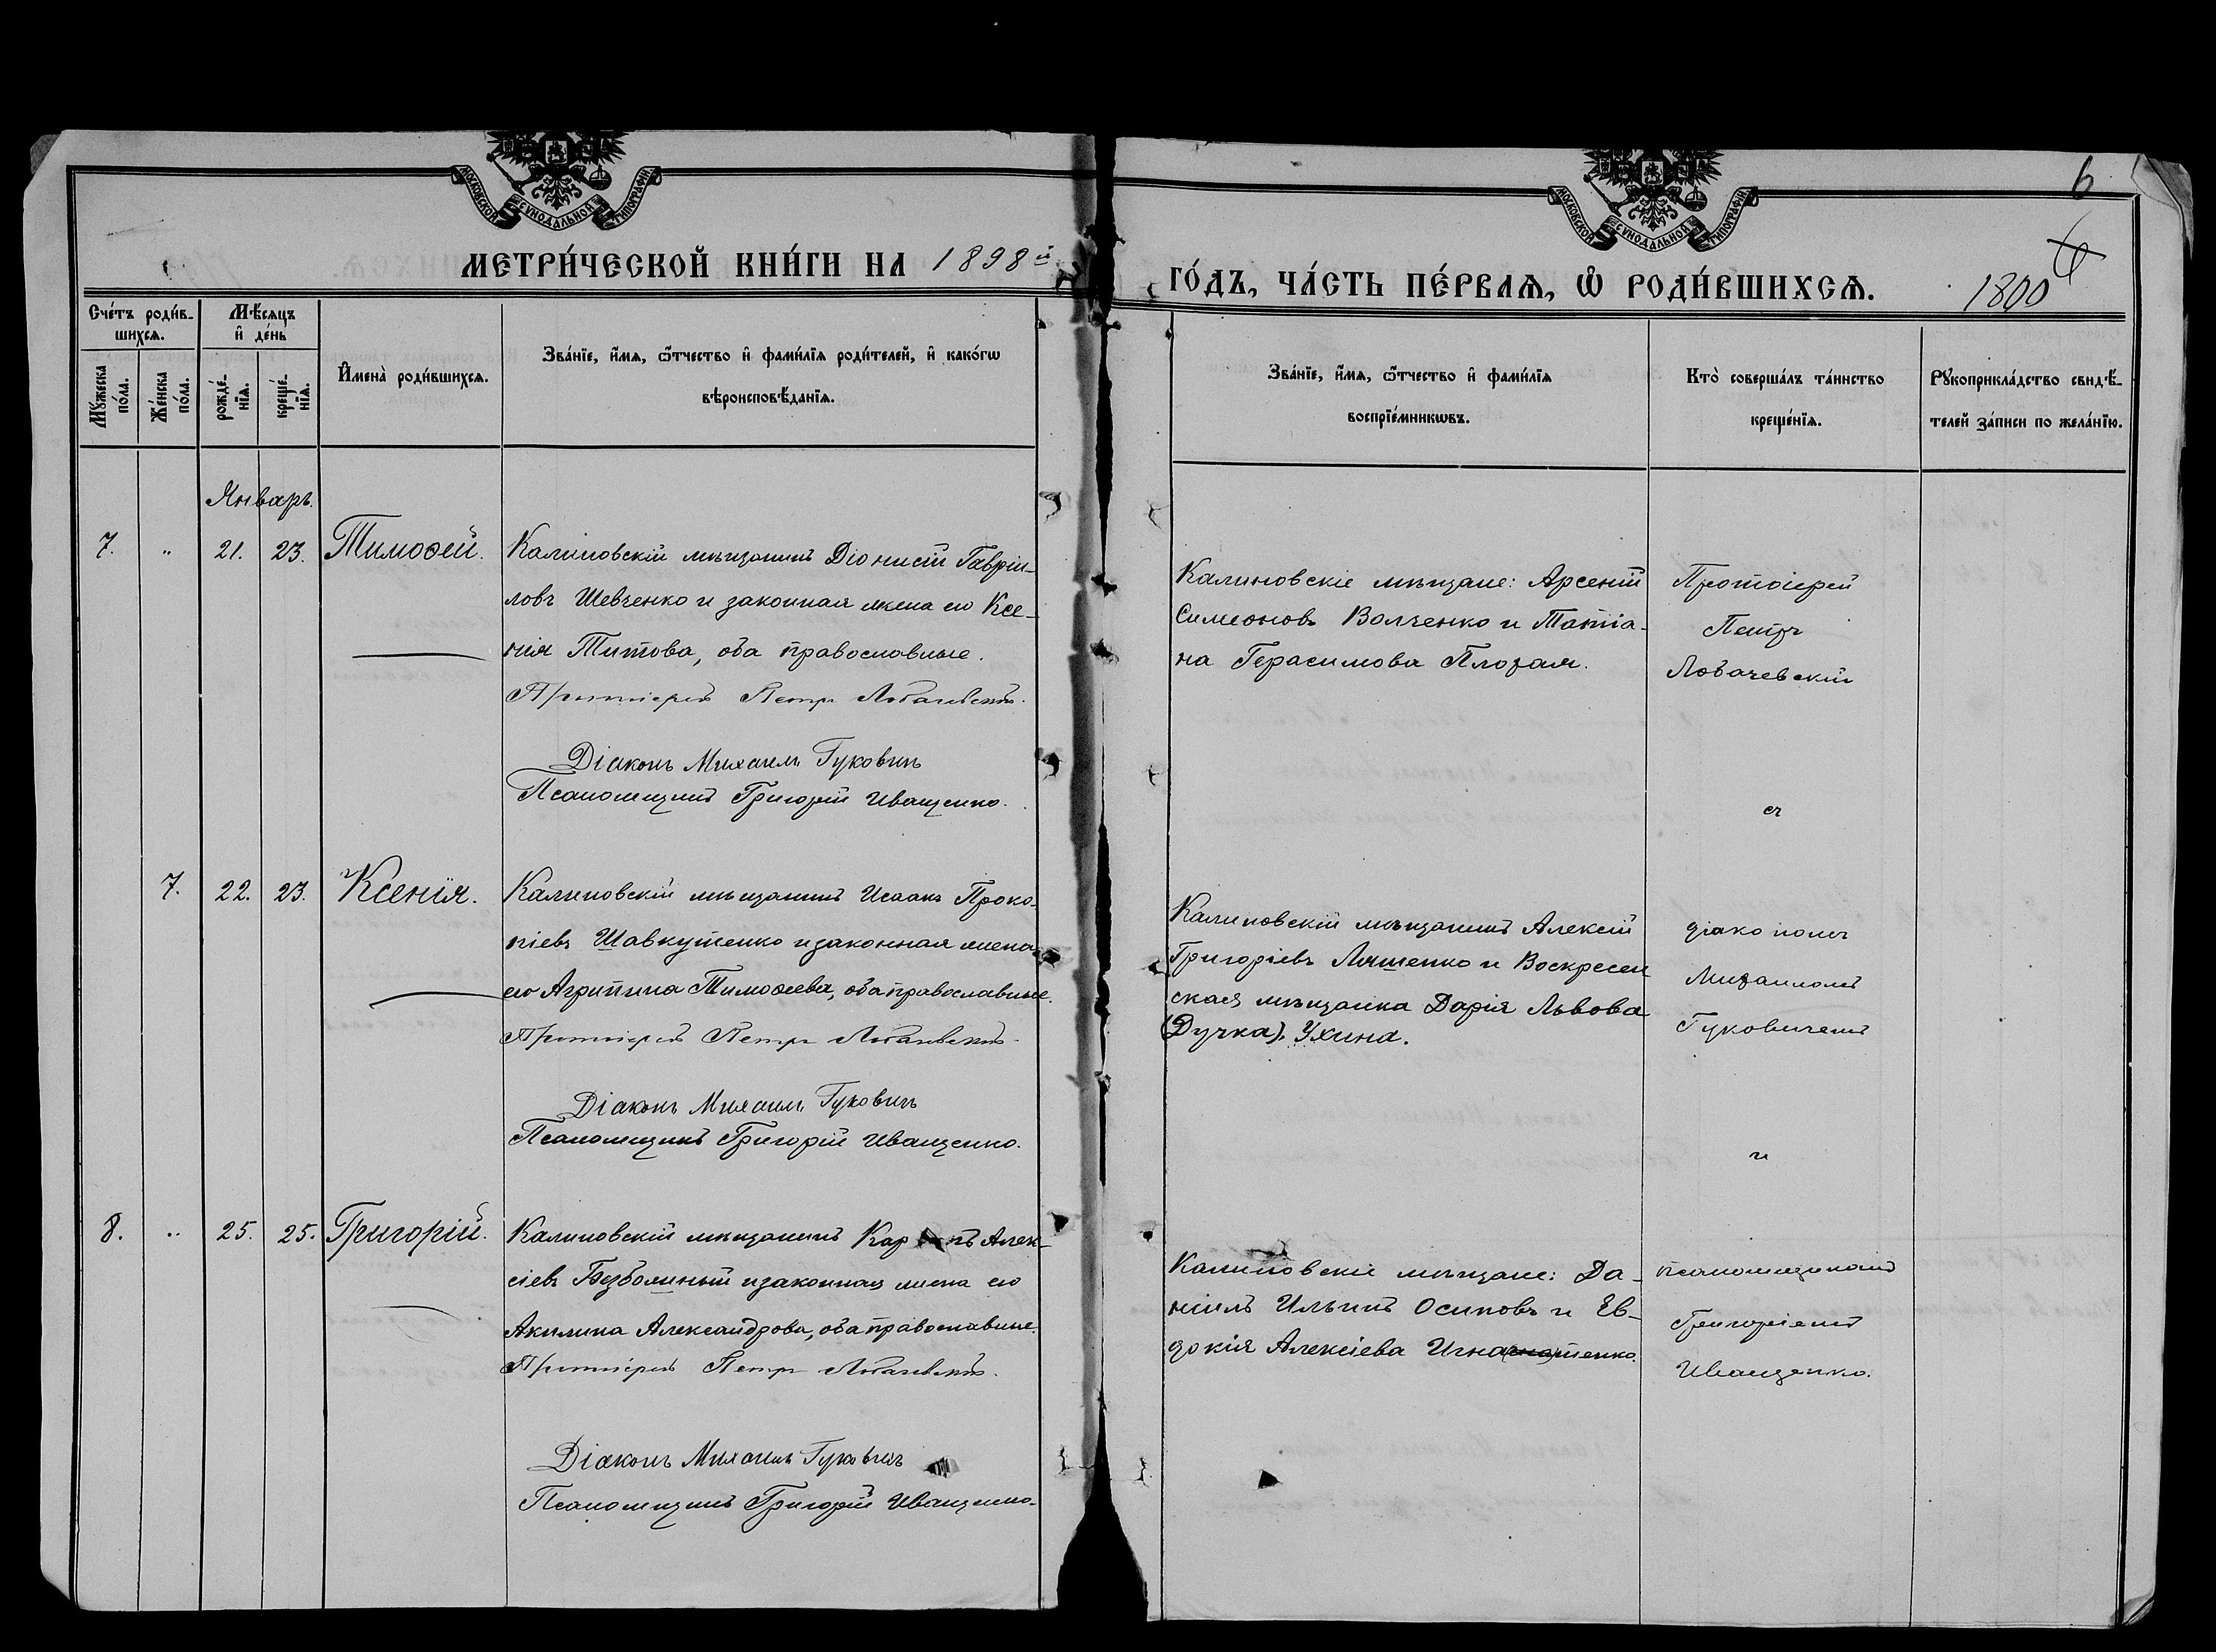 МОСКОВСКОЙ СѴНОДАЛЬНОЙ ТИПОГРАФІИ
МОСКОВСКОЙ СѴНОДАЛЬНОЙ ТИПОГРАФІИ
6
МЕТРИ́ЧЕСКОЙ КНИ́ГИ НА 1898й
ГО́ДЪ, ЧА́СТЬ ПЕ́РВАѦ, Ѡ҆ РОДИ́ВШИХСѦ.
1800
Сче́тъ роди́в-
шихсѧ.
Мѣ́сѧцъ
и҆ де́нь
Мꙋ́жеска
по́ла.
Же́нска
по́ла.
рожде́-
нїѧ.
креще́-
нїѧ.
И҆мена̀ роди́вшихсѧ.
Зва́нїе, и҆́мѧ, ѻ҆́тчество и҆ фами́лїѧ роди́телей, и҆ како́гѡ
вѣроисповѣ́данїѧ.
Зва́нїе, и҆́мѧ, ѻ҆́тчество и҆ фами́лїѧ
воспрїе́мникѡвъ.
Кто̀ соверша́лъ та́инство
креще́нїѧ.
Рꙋкоприкла́дство свидѣ́-
телей за́писи по жела́нїю.
Январь.
7. „ 21. 23. Тимоѳей.
Калиновскій мѣщанинъ Діонисій Гаврiи-
ловъ Шевченко и законная жена его Ксе-
нія Титова, оба православные.
Протоіерей Петръ Лобачевскій.
Діаконъ Михаилъ Гуковичъ
Псаломщикъ Григорій Иващенко.
Калиновскіе мѣщане: Арсеній
Симеоновъ Волченко и Татіа-
на Герасимова Плохая.
Протоіерей
Петръ
Лобачевскій
съ
7. 22. 23. Ксенія.
Калиновскій мѣщанинъ Исаакъ Проко-
піевъ Шавкутенко и законная жена
его Агрипина Тимоѳеева, оба православные.
Протоіерей Петръ Лобачевскій.
Діаконъ Михаилъ Гуковичъ
Псаломщикъ Григорій Иващенко.
Калиновскій мѣщанинъ Алексій
Григоріевъ Ляшенко и Воскресен
ская мѣщанка Дарія Львова
(Дучка), Ухина.
діакономъ
Михаиломъ
Гуковичемъ
и
8. „ 25. 25. Григорій.
Калиновскій мѣщанинъ Кар пъ Алек-
сіевъ Безболиный и законная жена его
Акилина Александрова, оба православные.
Протоіерей Петръ Лобачевскій.
Діаконъ Михаилъ Гуковичъ
Псаломщикъ Григорій Иващенко.
Калиновскіе мѣщане: Да-
ніилъ Ильинъ Осиповъ и Ев-
докія Алексіева Игнатенко.
псаломщикомъ
Григоріемъ
Иващенко.